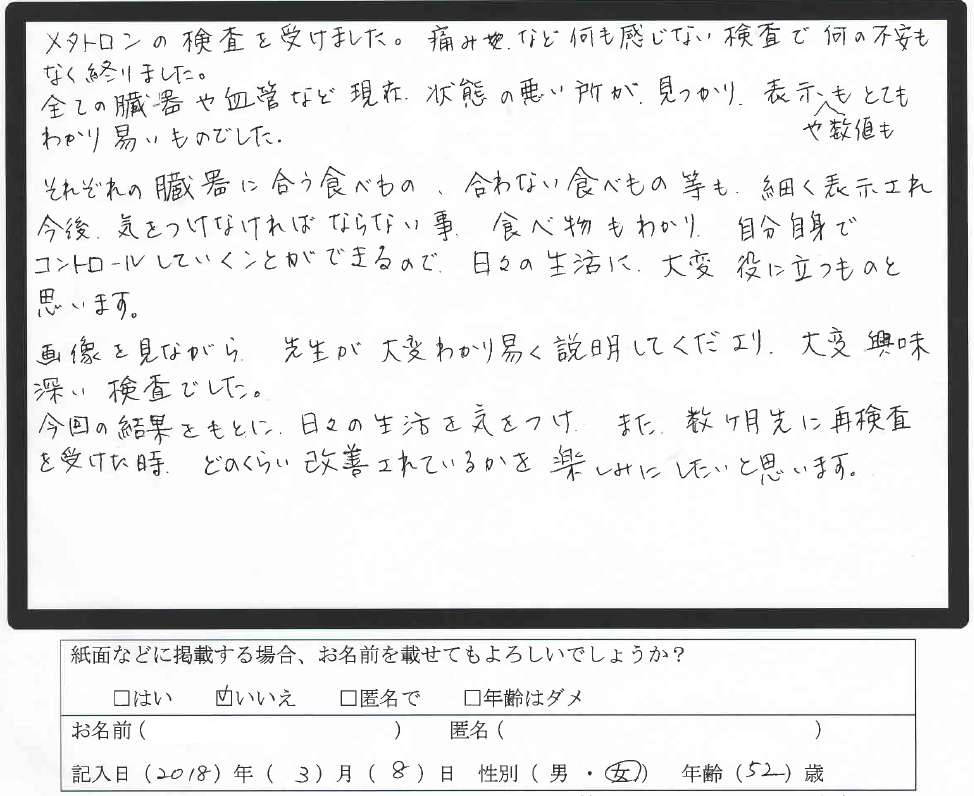 メタトロンの検査を受けました。痛みなど何も感じない検査で何の不安も
なく終りました。
全ての臓器や血管など現在、状態の悪い所が、見つかり、表示や数値も、もとても
わかり易いものでした。
それぞれの臓器に合う食べもの、合わない食べもの等も、細く表示され
今後、気をつけなければならない事、食べ物もわかり、自分自身で
コントロールしていくことができるので、日々の生活に、大変役に立つものと
思います。
画像を見ながら、先生が大変わかり易く説明してくださり、大変興味
深い検査でした。
今回の結果をもとに、日々の生活を気をつけ、また、数ヶ月先に再検査
を受けた時、どのくらい改善されているかを楽しみにしたいと思います。
紙面などに掲載する場合、お名前を載せてもよろしいでしょうか？
□はい ☑いいえ □匿名で □年齢はダメ
お名前（ ） 匿名（ ）
記入日（2018）年（ 3 ）月（ 8 ）日 性別（ 男 ・ 女 ） 年齢（52）歳